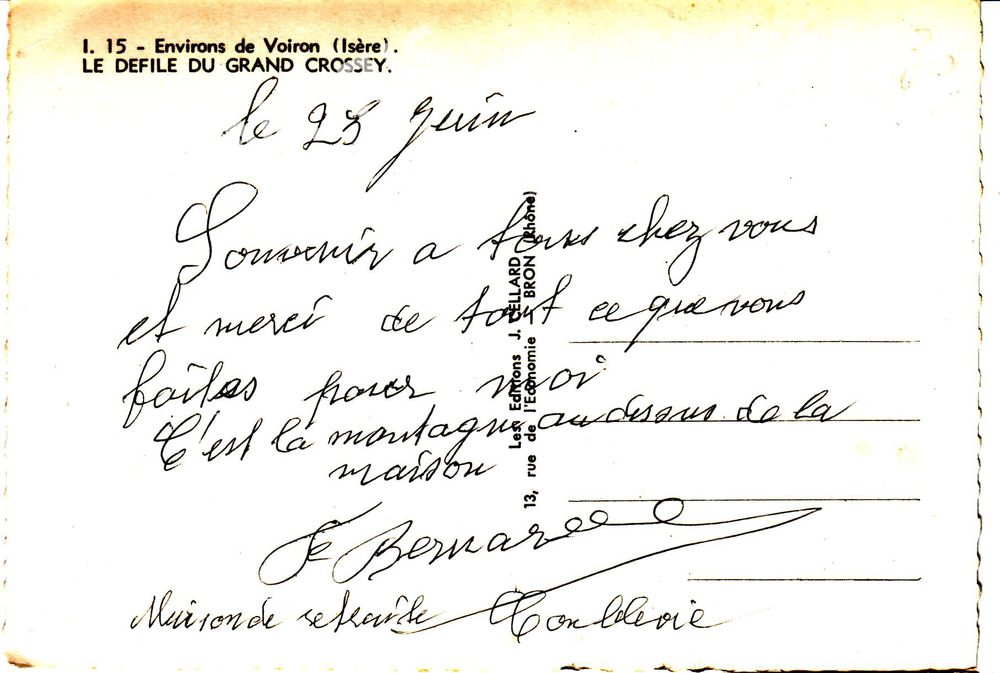 I. 15 - Environs de Voiron (Isère).
LE DEFILE DU GRAND CROSSEY.
le 23 Juin
Souvenir a tous chez vous
et merci de tout ce que vous
faites pour moi
C'est la montagne audessus de la
maison
Bernard
Maison de retraite Coublevie
Les Editions J. CELLARD
13, rue de l'Economie - BRON (Rhône)